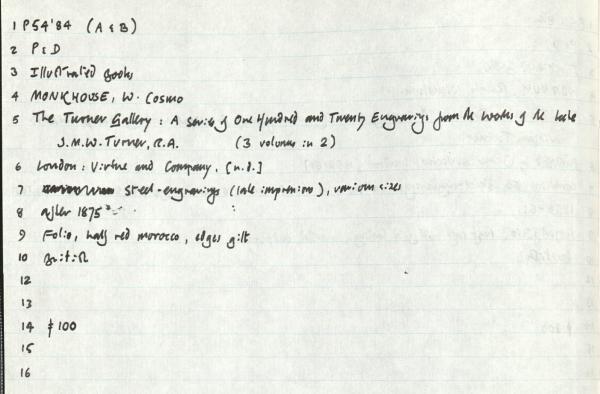 1 P54'84 (A & B)
2 P & D
3 Illustrated Books
4 MONKHOUSE, W. Cosmo
5 The Turner Gallery : A series of One Hundred and Twenty Engravings from the Works of the late
J.M.W. Turner, R.A. (3 volumes in 2)
6 London : Virtue and Company, [n.d.]
7 steel-engravings (late impressions), various sizes
8 after 1875
9 Folio, half red morocco, edges gilt
10 British
12
13
14 $100
15
16